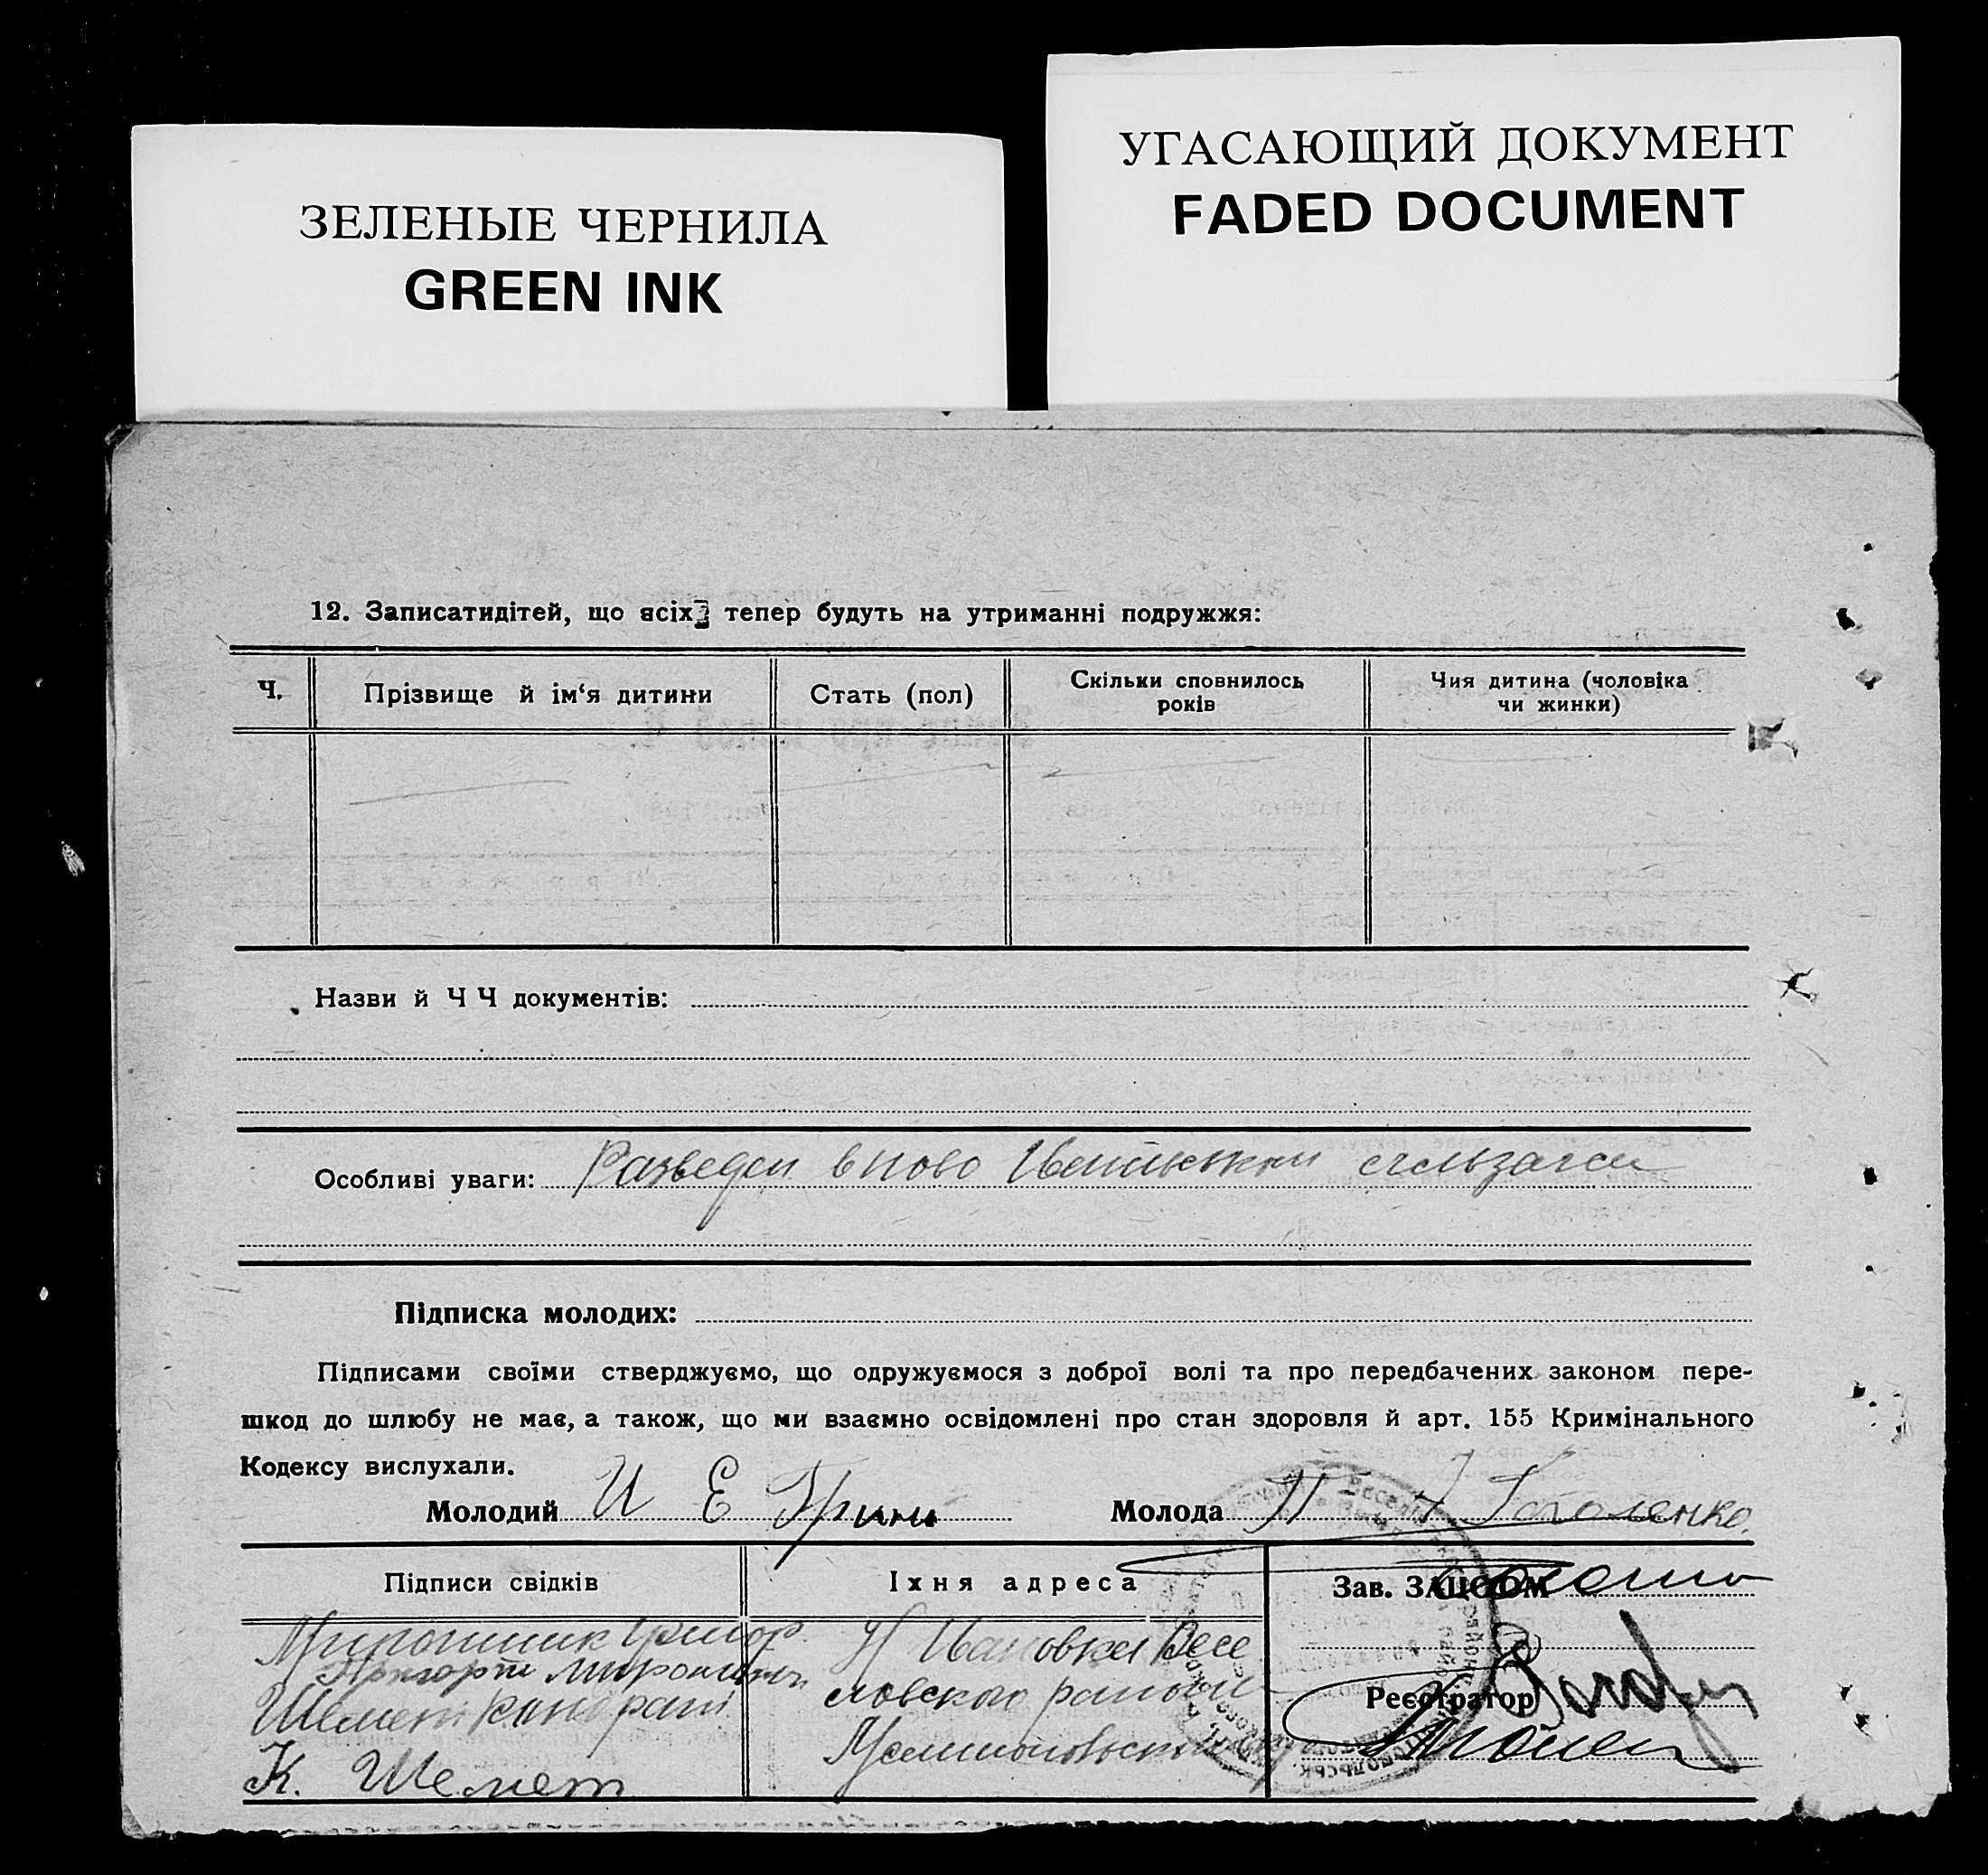 УГАСАЮЩИЙ ДОКУМЕНТ
FADED DOCUMENT
ЗЕЛЕНЫЕ ЧЕРНИЛА
GREEN INK
12. Записатидітей, що всіх тепер будуть на утриманні подружжя:
Ч.
Прізвище й ім‘я дитини
Стать (пол)
Скільки сповнилось
років
Чия дитина (чоловіка
чи жинки)
Назви й Ч Ч документів:
Особливі уваги: Разведен в ново
Підписка молодих:
Підписами своїми стверджуємо, що одружуємося з доброї волі та про передбачених законом пере-
шкод до шлюбу не має, а також, що ми взаємно освідомлені про стан здоровля й арт. 155 Кримінального
Кодексу вислухали.
Молодий И Е Грини
Молода П Гоголенко
Підписи свідків
Їхня адреса
Зав. ЗАЦСОМ
Мирошник Григор.
Н Ивановка Весе
Григорій
ловского район
Шемет Кондрат
Реєстратор
К. Шемет